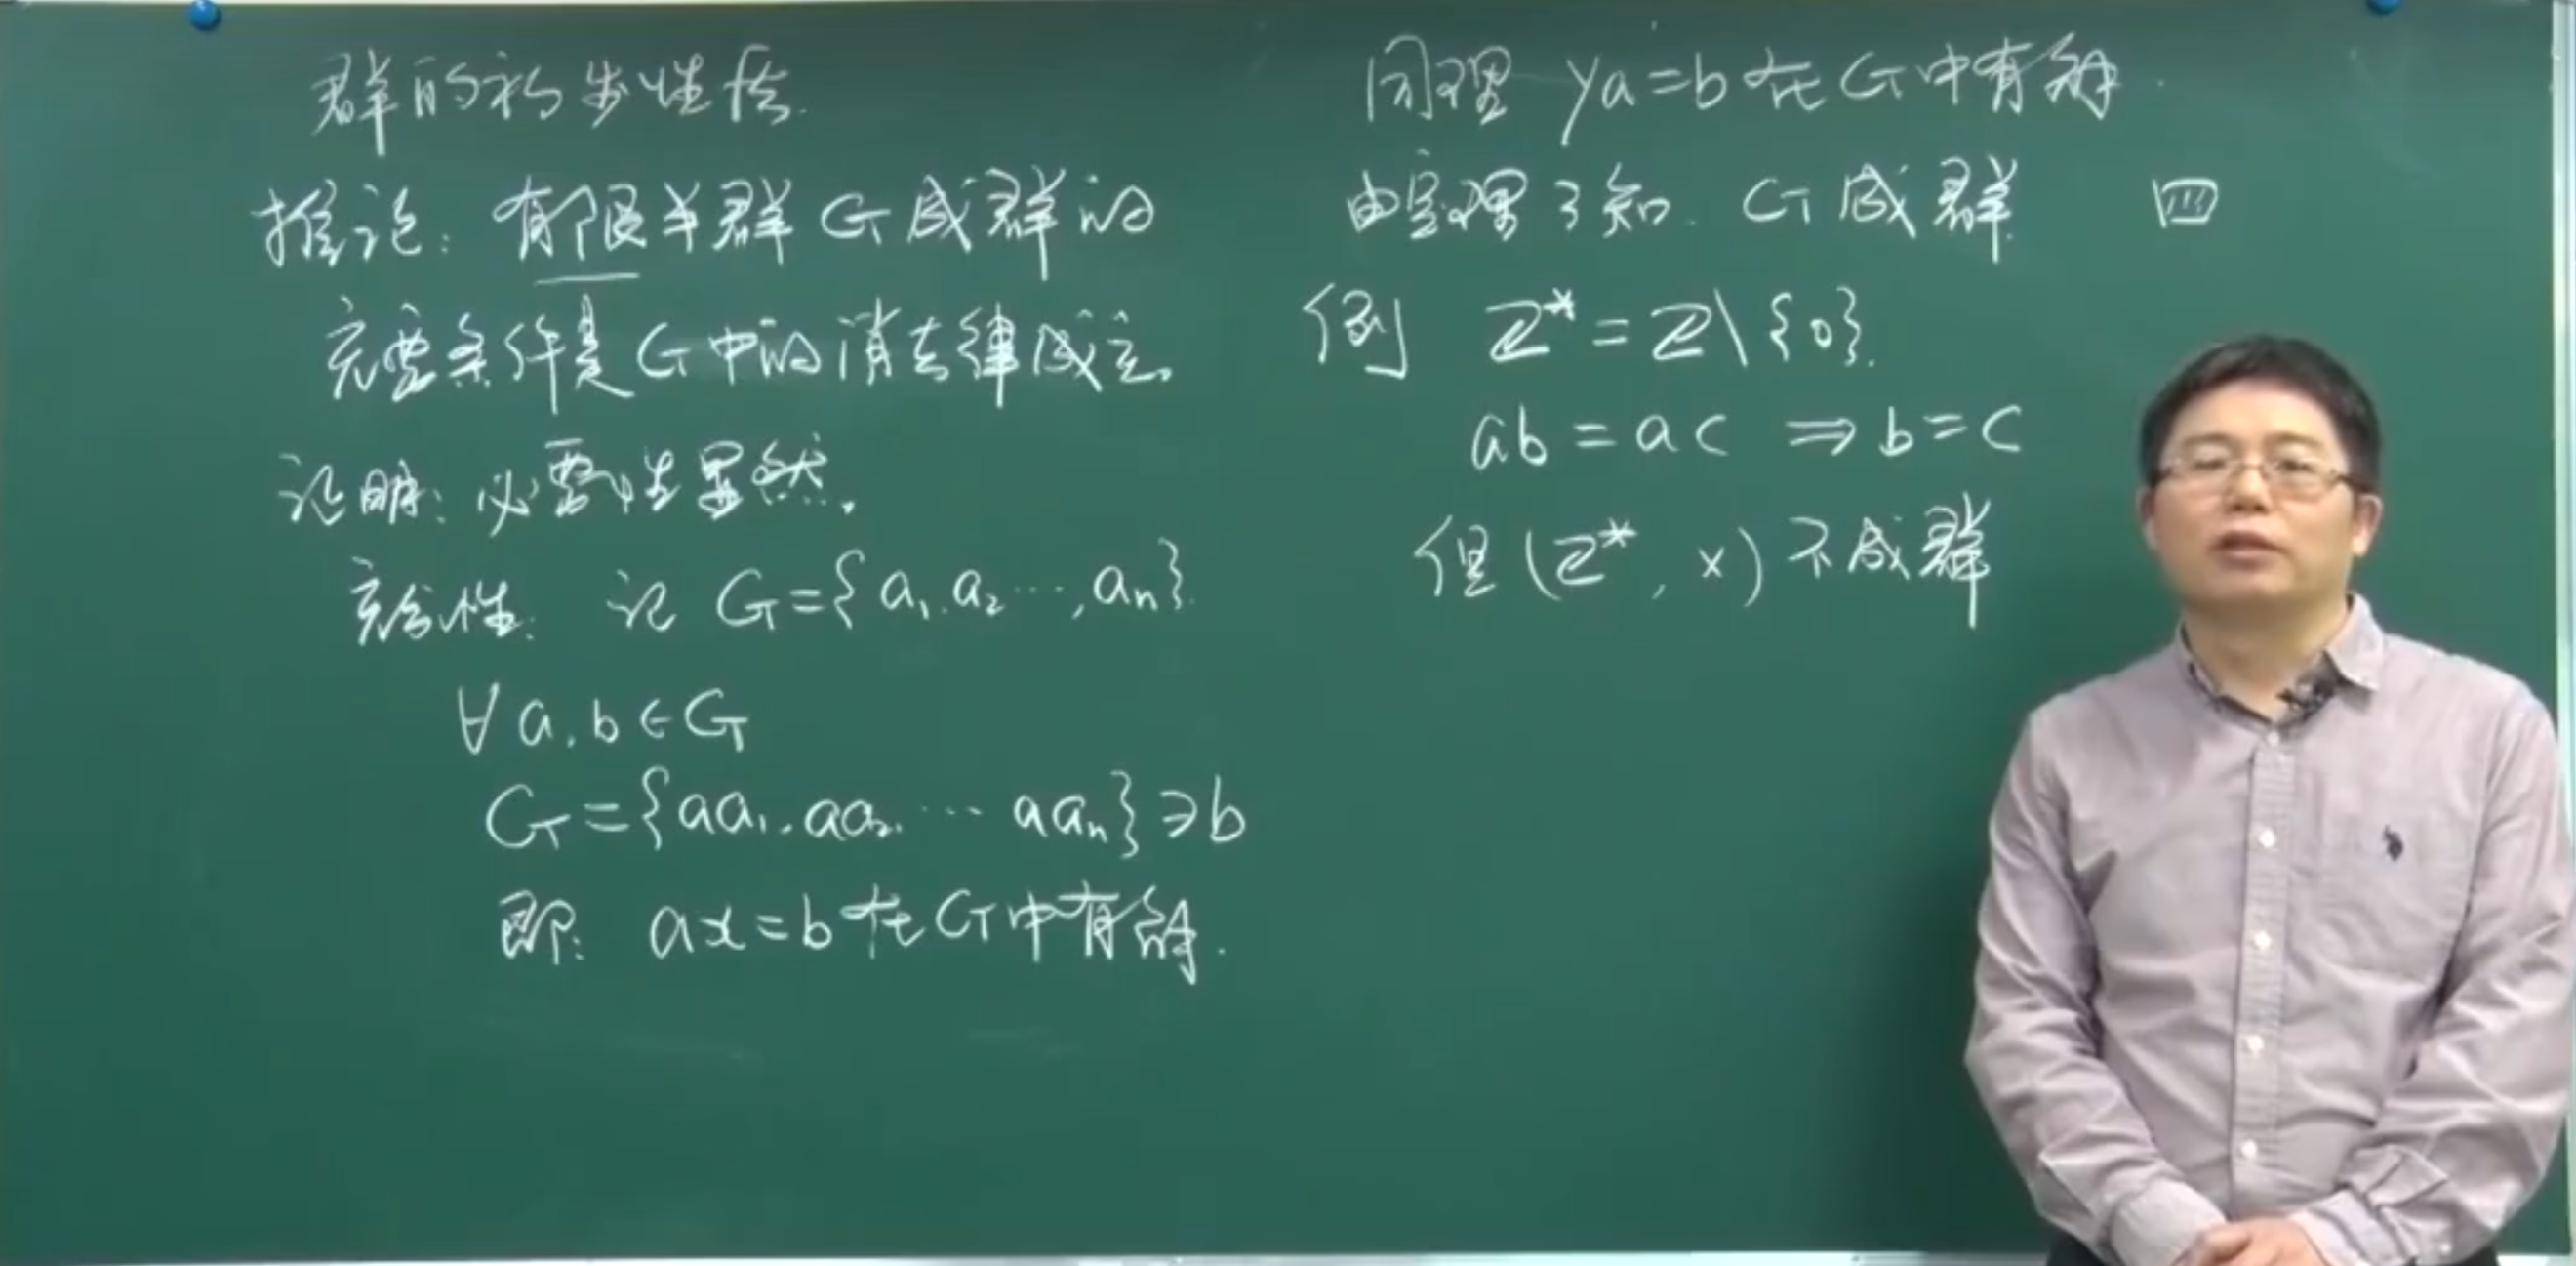 群的初步性质.
推论: 有限半群 G 成群的
充要条件是 G 中的消去律成立.
证明: 必要性显然.
充分性: 记 G={a₁,a₂…,aₙ}.
∀a,b∈G
G={aa₁,aa₂,…aaₙ}∋b
即: ax=b 在 G 中有解.
同理 ya=b 在 G 中有解.
由定理 3 知. G 成群
例 Z*=Z\{0}.
ab=ac ⇒ b=c
但 (Z*, ×) 不成群